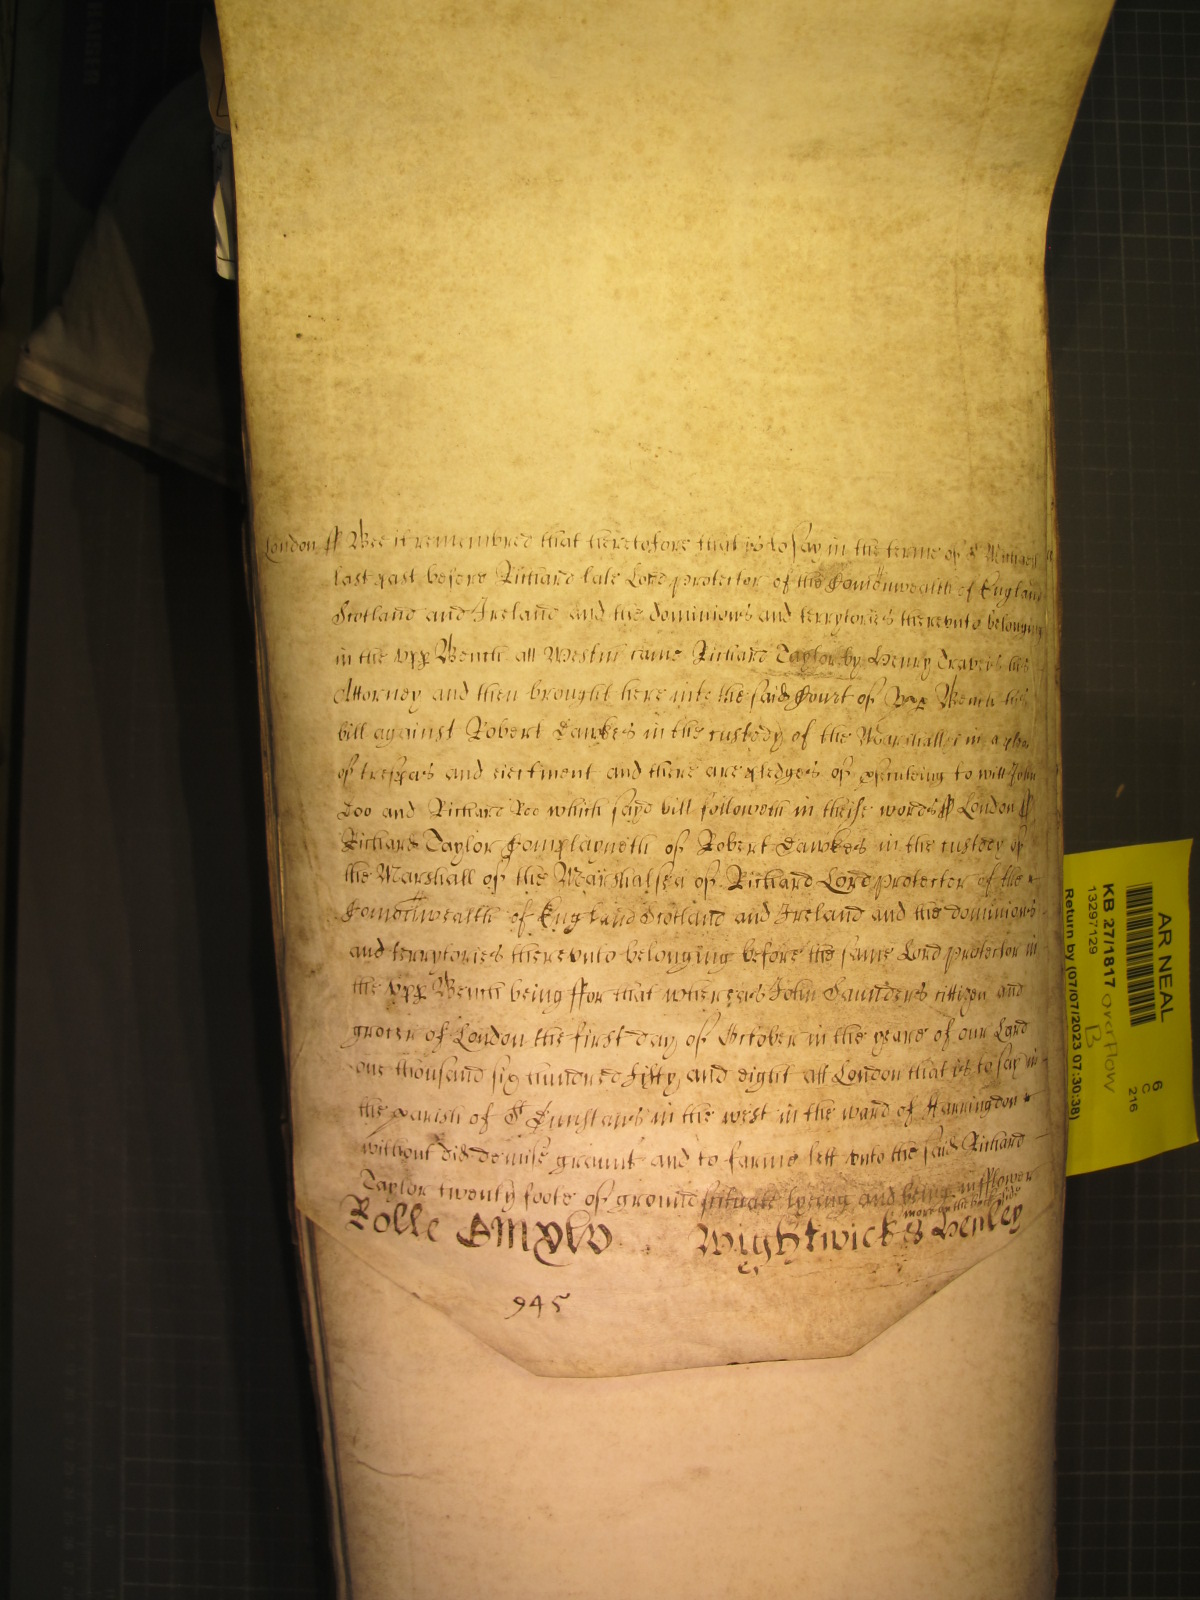 London ss Bee it remembred that heretofore that is to say in the terme of St Michaell
last past before Richard late Lord protector of the Comonwealth of England
Scotland and Ireland and the dominions and terrytories thereunto belonging
in the upp Bench att Westmr came Richard Taylor by Henry Travers his
Attorney and then brought here into the said Court of Upp Bench his
bill against Robert Dawkes in the custody of the Marshall &c in a plea
of trespas and eiectment and there are pledges of prosecuting to witt John
Doo and Richard Roo which sayd bill followeth in theise words ss London ss
Richard Taylor Complayneth of Robert Dawkes in the custody of
the Marshall of the Marshalsea of Richard Lord protector of the
Comonwealth of England Scotland and Ireland and the dominions
and terrytories thereunto belonging before the same Lord protector in
the upp Bench being ffor that whereas John Saunders cittizen and
grocer of London the first day of October in the yeare of our Lord
one thousand six hundred fifty and eight att London that is to say in
the parish of St Dunstans in the west in the ward of Farringdon
without did demise graunt and to farme lett unto the said Richard
Taylor twenty foote of ground scituate lyeing and being in fflower
more on the back side
Rolle Wightwick & Henley
945
AR NEAL
KB 27/1817 overflow
B
13297129
Return by (07/07/2023 07:30:38)
6
C
216